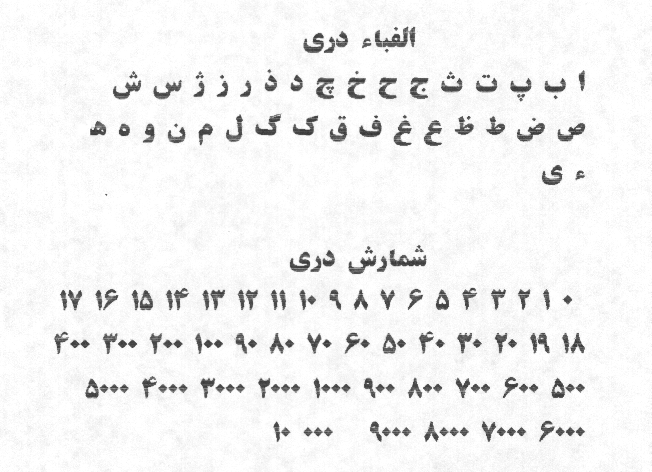 الفباء دری
ا ب پ ت ث ج ح خ چ د ذ ر ز ژ س ش
ص ض ط ظ ع غ ف ق ک گ ل م ن و ه ه‍
ء ی
شمارش دری
۰ ۱ ۲ ۳ ۴ ۵ ۶ ۷ ۸ ۹ ۱۰ ۱۱ ۱۲ ۱۳ ۱۴ ۱۵ ۱۶ ۱۷
۱۸ ۱۹ ۲۰ ۳۰ ۴۰ ۵۰ ۶۰ ۷۰ ۸۰ ۹۰ ۱۰۰ ۲۰۰ ۳۰۰ ۴۰۰
۵۰۰ ۶۰۰ ۷۰۰ ۸۰۰ ۹۰۰ ۱۰۰۰ ۲۰۰۰ ۳۰۰۰ ۴۰۰۰ ۵۰۰۰
۶۰۰۰ ۷۰۰۰ ۸۰۰۰ ۹۰۰۰ ۱۰ ۰۰۰